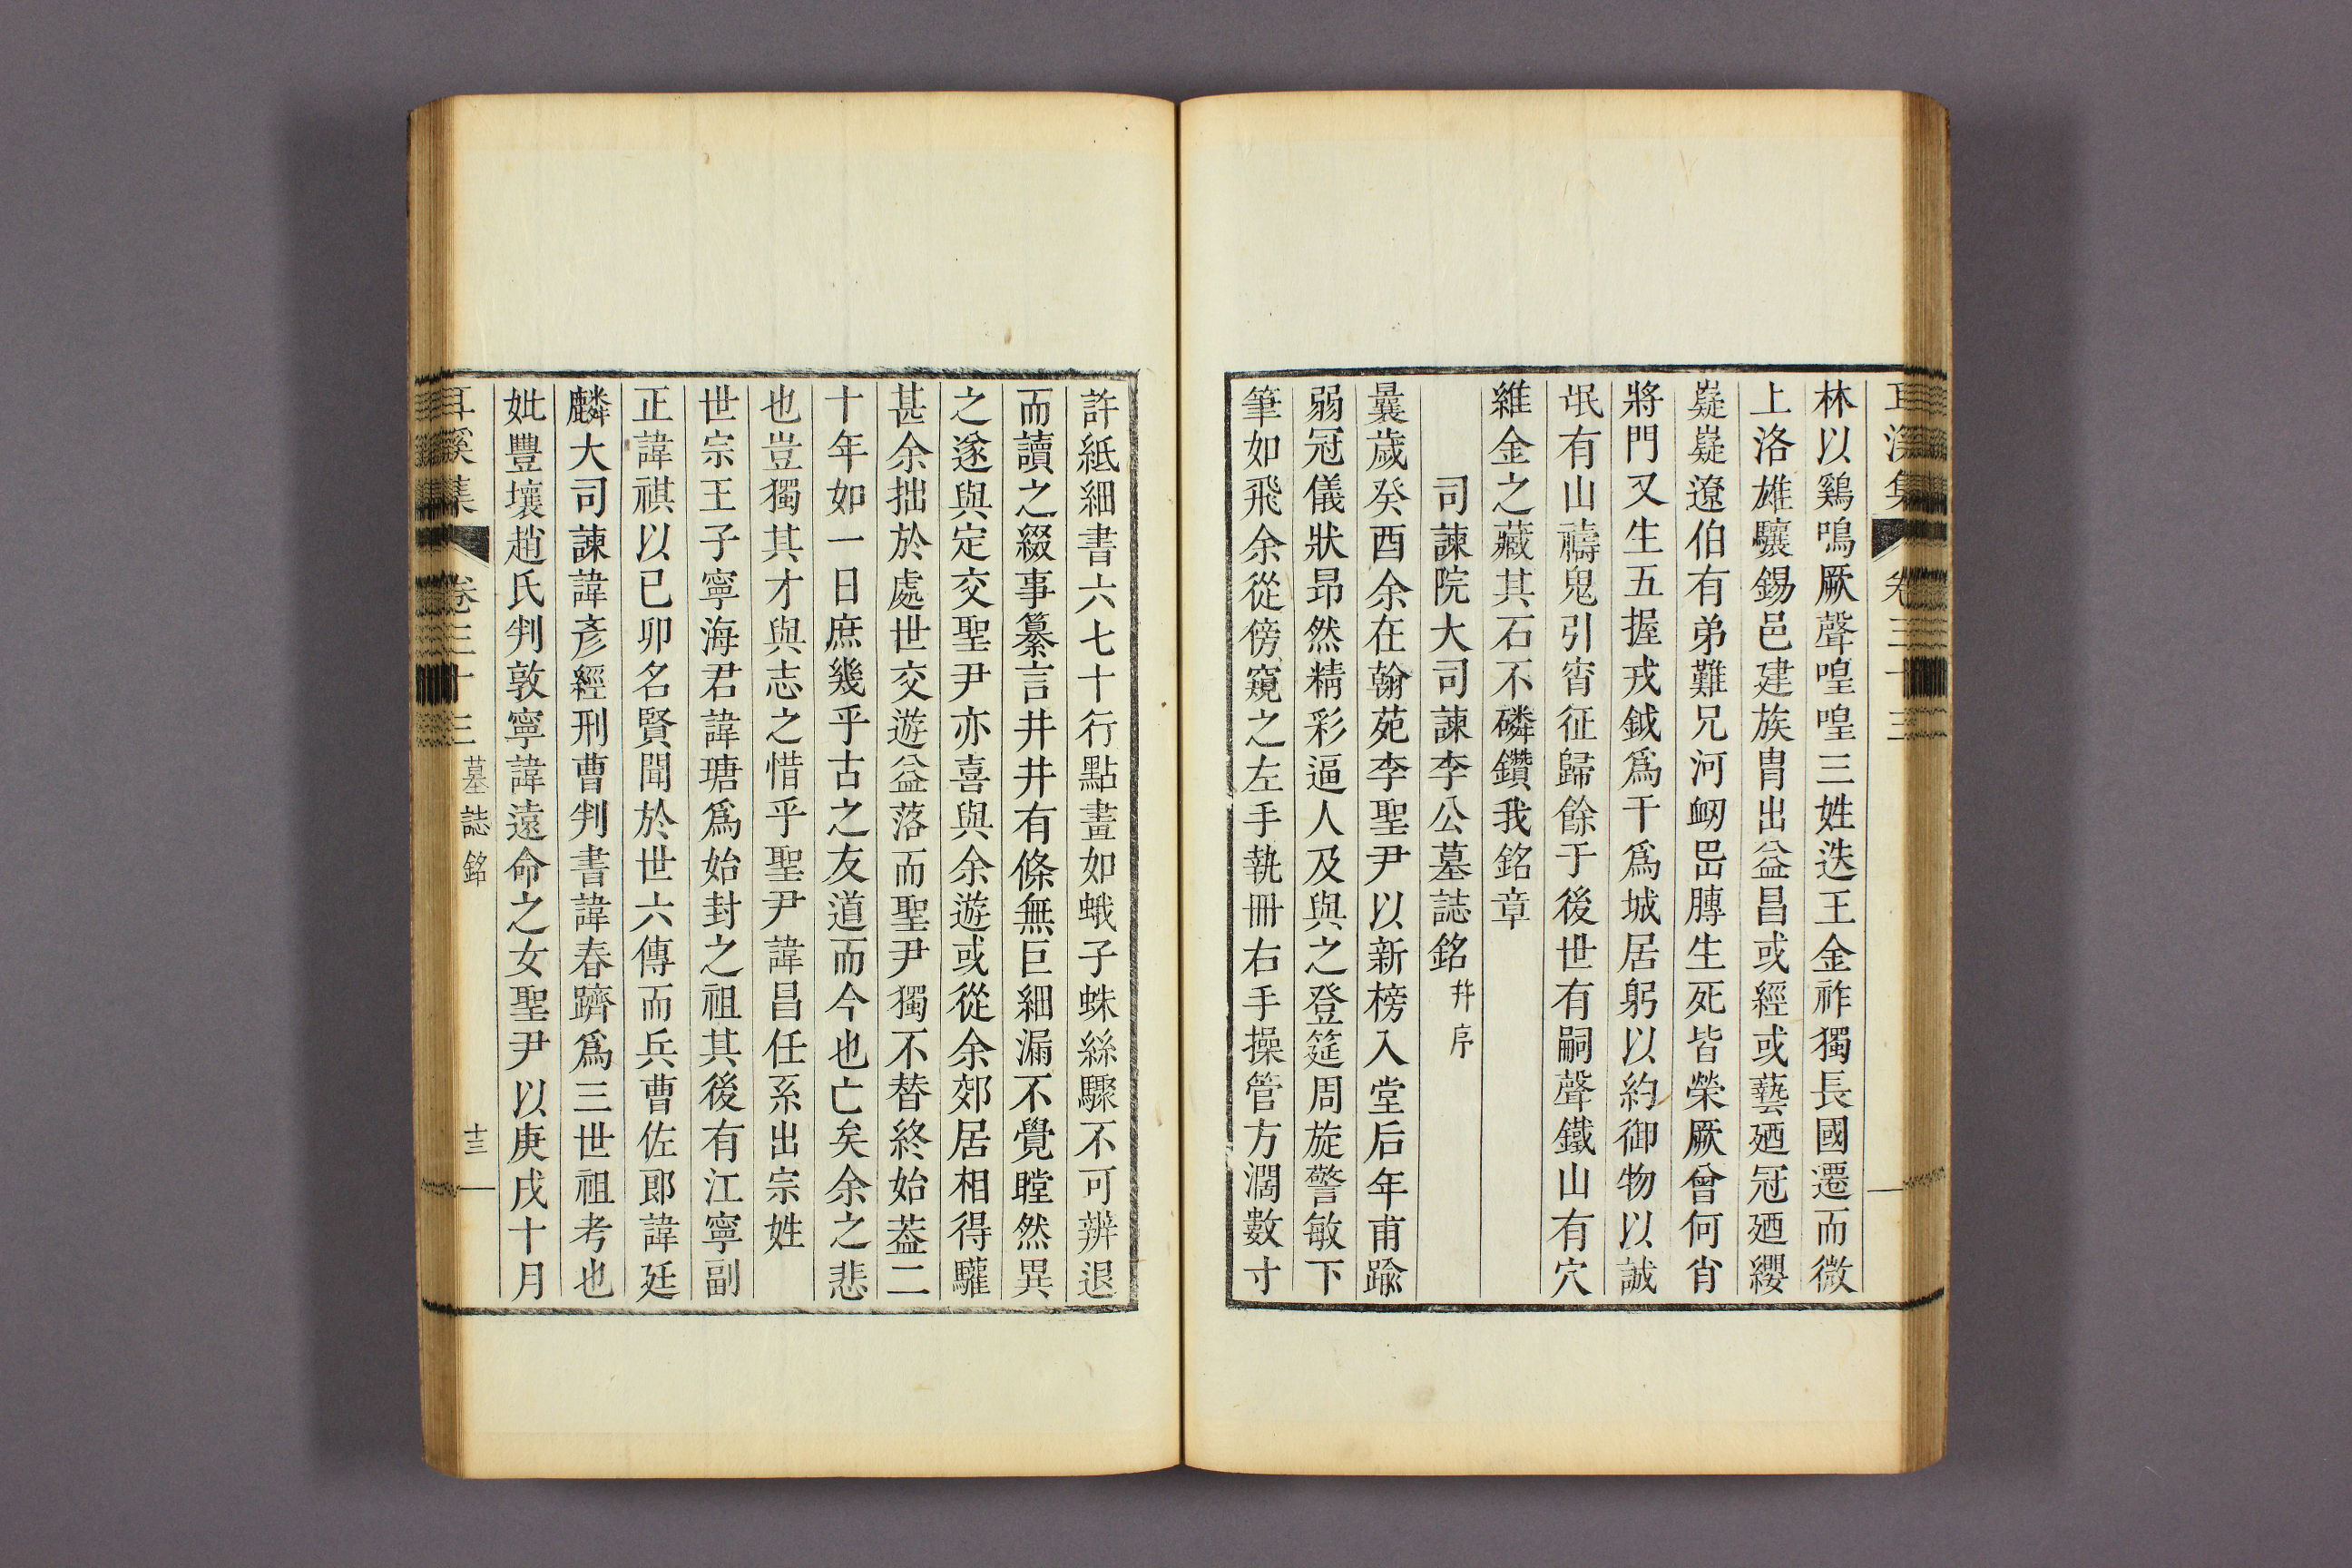 耳溪集 卷三十三
林以鷄鳴厥聲喤喤三姓迭王金祚獨長國遷而微
上洛雄驤錫邑建族胄出益昌或經或藝廼冠廼纓
嶷嶷遼伯有弟難兄河衂嵒膞生死皆榮厥曾何肖
將門又生五握戎鉞爲干爲城居躬以約御物以誠
氓有山禱鬼引宵征歸餘于後世有嗣聲鐵山有穴
維金之藏其石不磷鑽我銘章
司諫院大司諫李公墓誌銘 幷序
曩歲癸酉余在翰苑李聖尹以新榜入堂后年甫踰
弱冠儀狀昻然精彩逼人及與之登筵周旋警敏下
筆如飛余從傍窺之左手執冊右手操管方濶數寸
許紙細書六七十行點畫如蛾子蛛絲驟不可辨退
而讀之綴事纂言井井有條無巨細漏不覺瞠然異
之遂與定交聖尹亦喜與余遊或從余郊居相得驩
甚余拙於處世交遊益落而聖尹獨不替終始葢二
十年如一日庶幾乎古之友道而今也亡矣余之悲
也豈獨其才與志之惜乎聖尹諱昌任系出宗姓
世宗王子寧海君諱瑭爲始封之祖其後有江寧副
正諱祺以已卯名賢聞於世六傳而兵曹佐郎諱廷
麟大司諫諱彥經刑曹判書諱春躋爲三世祖考也
妣豐壤趙氏判敦寧諱遠命之女聖尹以庚戌十月
耳溪集 卷三十三 墓誌銘 十三